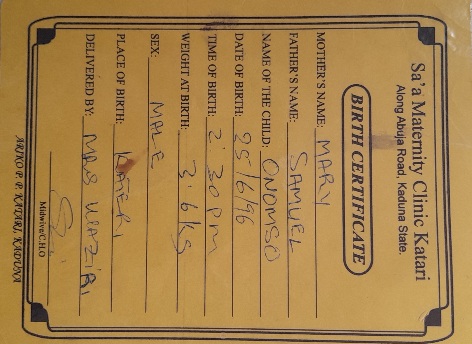 Sa'a Maternity Clinic Katari
Along Abuja Road, Kaduna State.
BIRTH CERTIFICATE
MOTHER'S NAME: MARY
FATHER'S NAME: SAMUEL
NAME OF THE CHILD: ONOMSO
DATE OF BIRTH: 25/6/96
TIME OF BIRTH: 2:30pm
WEIGHT AT BIRTH: 3.6kg
SEX: MALE
PLACE OF BIRTH: KATERI
DELIVERED BY: MRS WAZIRI
Midwive/C.H.O
P. P. KATARI, KADUNA